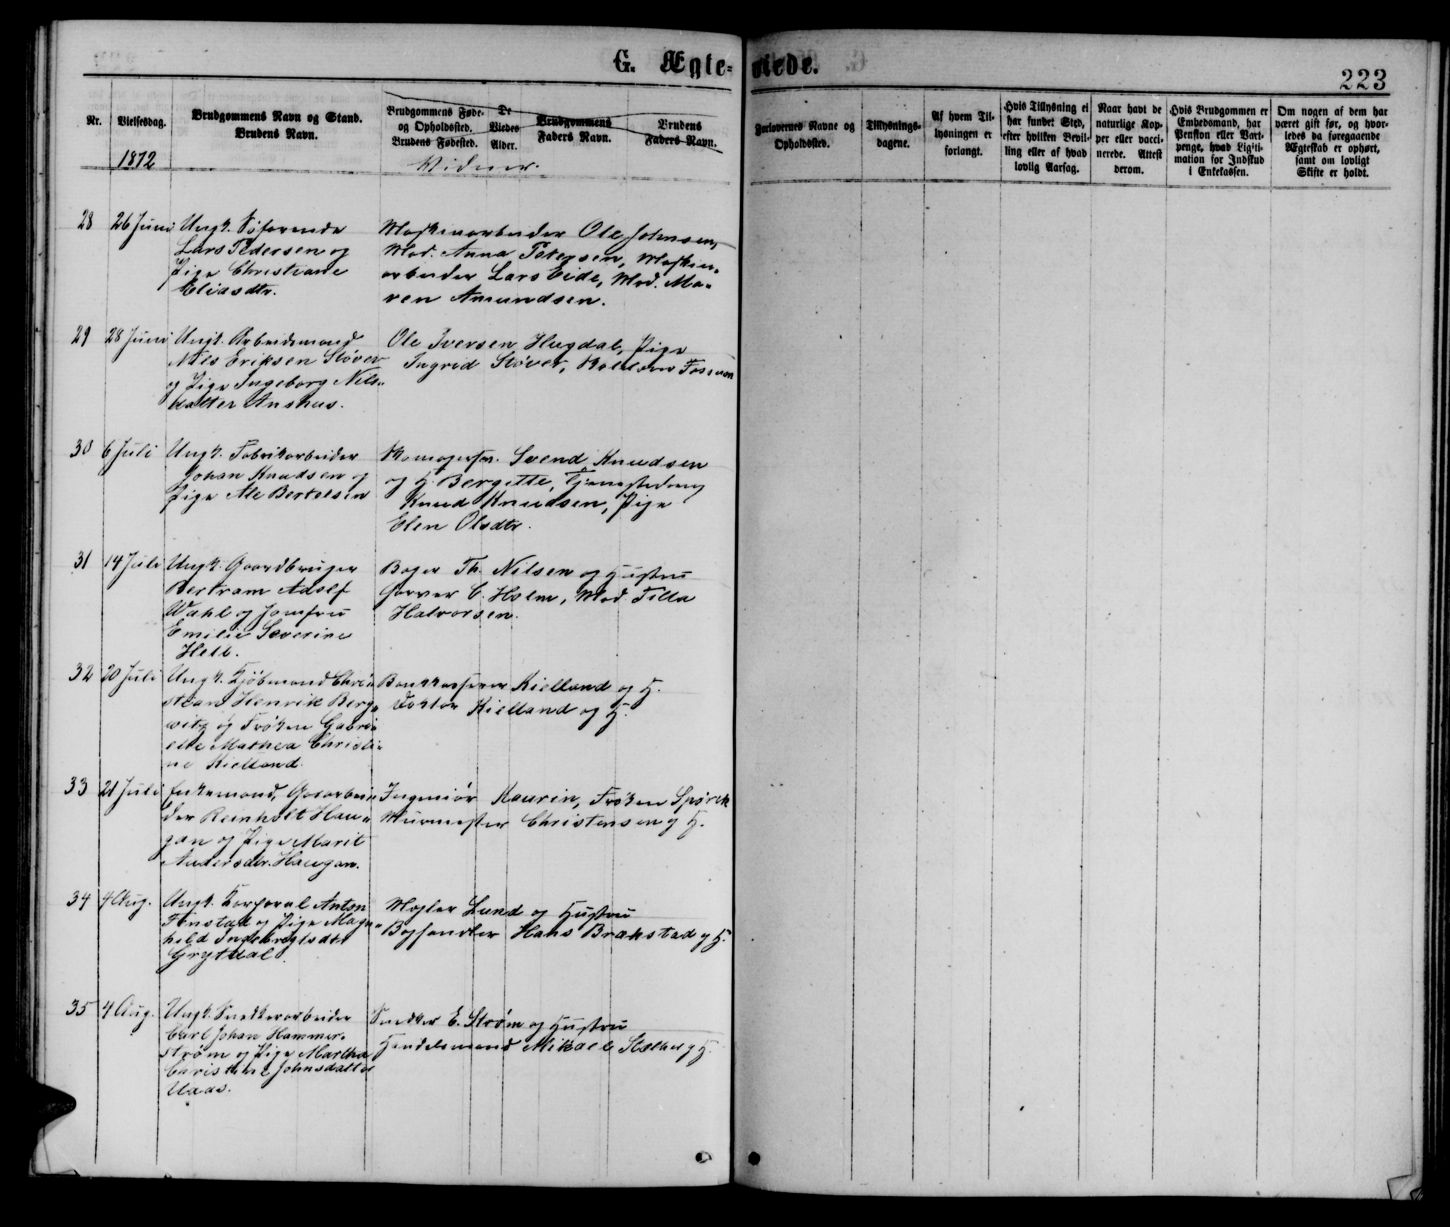 G. Ægte=
viede.
223
Nr.
Vielsesdag.
Brudgommens Navn og Stand.
Brudens Navn.
Brudgommens Føde-
og Opholdssted.
Brudens Fødested.
De
Viedes
Alder.
Brudgommens
Faders Navn.
Brudens
Faders Navn.
Forlovernes Navne og
Opholdssted.
Tillysnings-
dagene.
Af hvem Til-
lysningen er
forlangt.
Hvis Tillysning ei
har fundet Sted,
efter hvilken Bevil-
ling eller af hvad
lovlig Aarsag.
Naar havt de
naturlige Kop-
per eller vacci-
nerede. Attest
derom.
Hvis Brudgommen er
Embedsmand, har
Pension eller Vart-
penge, hvad Ligiti-
mation for Indskud
i Enkekassen.
Om nogen af dem har
været gift før, og hvor-
ledes da foregaaende
Ægteskab er ophørt,
samt om lovligt
Skifte er holdt.
1872
Vidner.
28 26 Juni Ungk. Søfarende
Lars Pedersen og
Pige Christiane
Eliasdtr.
Maskinarbeider Ole Johnsen,
Mad. Anna Petersen, Maskin-
arbeider Lars Eide, Mad. Ma-
ren Amundsen.
29 28 Juni Ungk. Arbeidsmand
Nils Eriksen Støver
og Pige Ingeborg Nils-
datter Aushus.
Ole Iversen Hugdal, Pige
Ingrid Støver,
30 6 Juli Ungk. Fabrikarbeider
Johan Knudsen og
Pige Ale Bertelsen
Skomagersv. Svend Knudsen
og H. Bergitte, Tjenestedreng
Knud Knudsen, Pige
Elen Olsdtr.
31 14 Juli Ungk. Gaardbruger
Bertram Adolf
Wahl og Jomfru
Emilie Severine
Hell.
Bager Th. Nilsen og Hustru
Garver C. Holm, Mad. Tilla
Halvorsen.
32 20 Juli Ungk. Kjøbmand Chri-
stian Henrik Berg-
witz og Frøken Gabri-
elle Mathea Christi-
ne Kielland.
Bankkasserer Kielland og H.
Doktor Kielland og H.
33 21 Juli Enkemand, Gaardbru-
der Reinholt Hau-
gan og Pige Marit
Andersdtr. Haugan.
Ingeniør Kaurin, Frøken Spørck
Murmester Christensen og H.
34 4 Aug. Ungk. Korporal Anton
Finstad og Pige Mag-
hild Ingebrigtsdtr
Grytdal.
Mægler Lund og Hustru
Boghandler Hans Brækstad og H.
35 4 Aug. Ungk. Snedkerarbeider
Carl Johan Hammer-
strøm og Pige Martha
Christine Johnsdatter
Uaas.
Snedker E. Strøm og Hustru
Handelsmand Mikael Stølber og H.